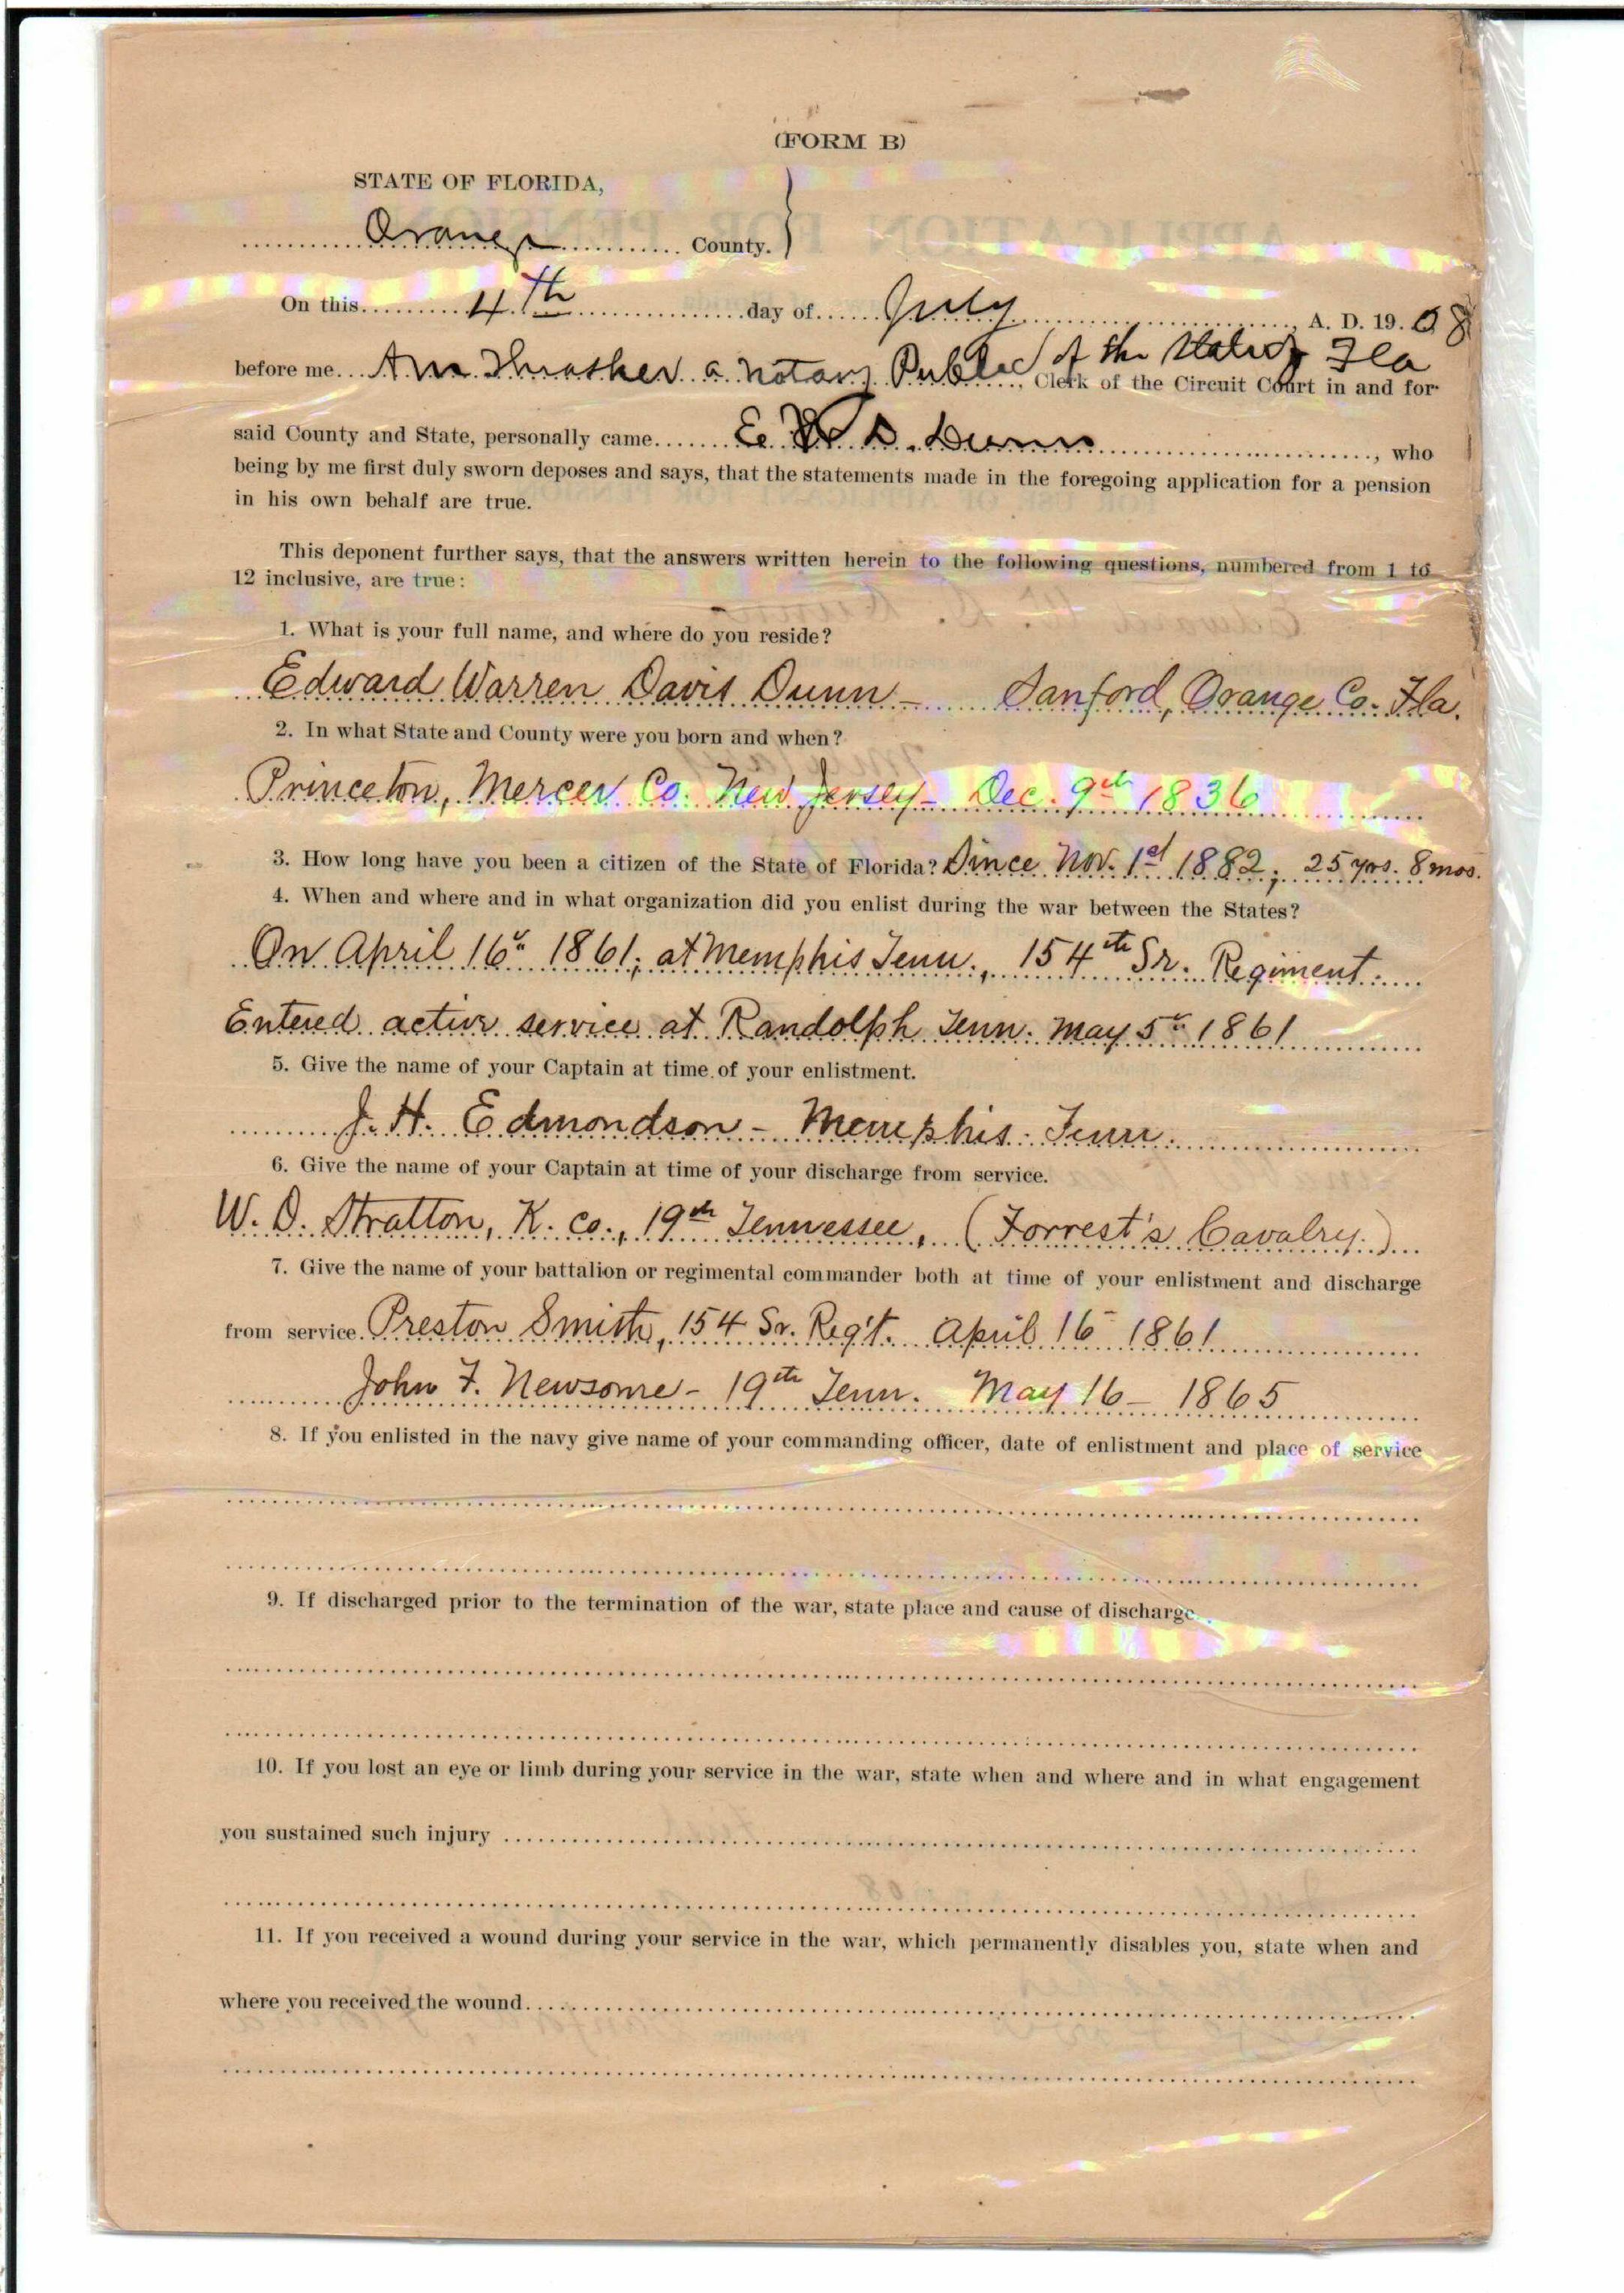 (FORM B)
STATE OF FLORIDA,
Orange County.
On this 4th day of July, A. D. 1908
before me A M Thrasher a notary Public of the State of Fla, Clerk of the Circuit Court in and for
said County and State, personally came E. W. D. Dunn, who
being by me first duly sworn deposes and says, that the statements made in the foregoing application for a pension
in his own behalf are true.
This deponent further says, that the answers written herein to the following questions, numbered from 1 to
12 inclusive, are true:
1. What is your full name, and where do you reside?
Edward Warren Davis Dunn - Sanford, Orange Co. Fla.
2. In what State and County were you born and when?
Princeton, Mercer Co. New Jersey - Dec. 9th 1836
3. How long have you been a citizen of the State of Florida? Since Nov. 1st 1882; 25 yrs. 8 mos.
4. When and where and in what organization did you enlist during the war between the States?
On April 16" 1861; at Memphis Tenn., 154th Sr. Regiment.
Entered active service at Randolph Tenn. May 5" 1861
5. Give the name of your Captain at time of your enlistment.
J. H. Edmondson - Memphis Tenn.
6. Give the name of your Captain at time of your discharge from service.
W. D. Stratton, K. Co., 19th Tennessee, (Forrest's Cavalry.)
7. Give the name of your battalion or regimental commander both at time of your enlistment and discharge
from service. Preston Smith, 154 Sr. Reg't. April 16 - 1861
John F. Newsome - 19th Tenn. May 16 - 1865
8. If you enlisted in the navy give name of your commanding officer, date of enlistment and place of service
9. If discharged prior to the termination of the war, state place and cause of discharge.
10. If you lost an eye or limb during your service in the war, state when and where and in what engagement
you sustained such injury
11. If you received a wound during your service in the war, which permanently disables you, state when and
where you received the wound.